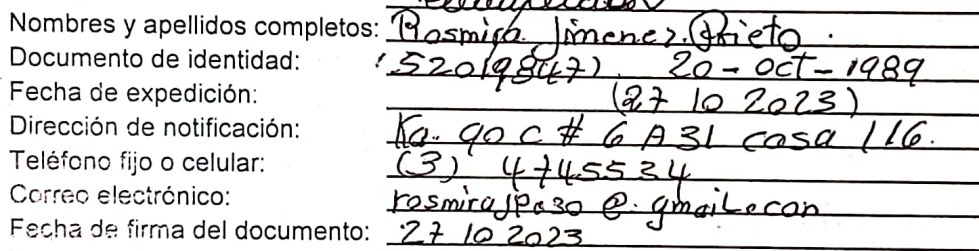 Nombres y apellidos completos: Rosmira Jimenez Prieto.
Documento de identidad: 52019847) 20-oct-1989
Fecha de expedición: (27 10 2023)
Dirección de notificación: Ka. 90 C # 6 A 31 casa 116.
Teléfono fijo o celular: (3) 4745534
Correo electrónico: rosmirajpa30 @. gmail.con
Fecha de firma del documento: 27 10 2023